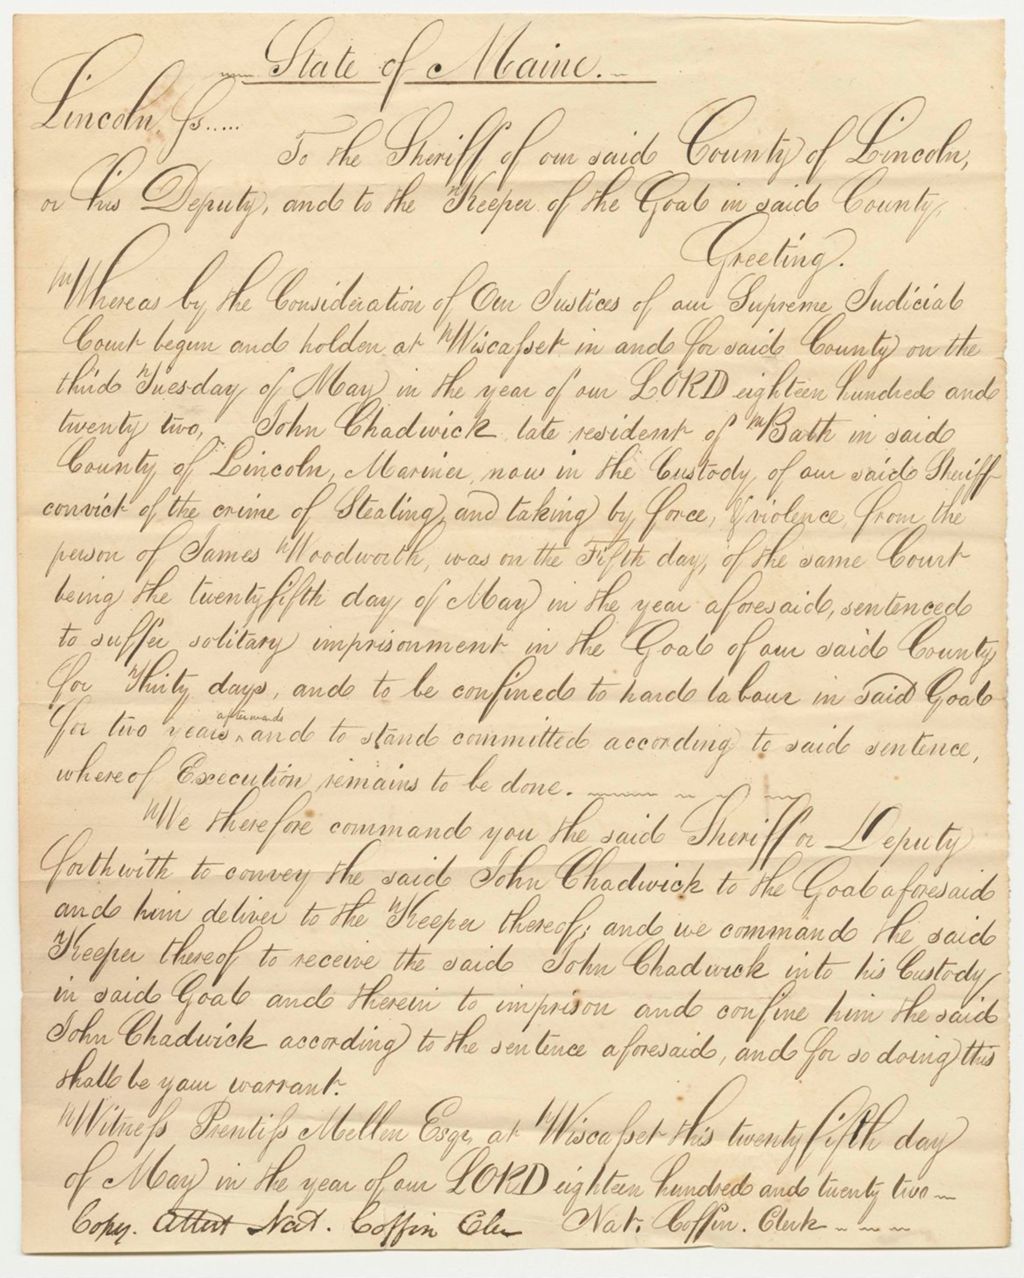 State of Maine.
Lincoln, ss.....
To the Sheriff of our said County of Lincoln,
or his Deputy, and to the Keeper of the Goal in said County,
Greeting.
Whereas by the Consideration of Our Justices of our Supreme Judicial
Court begun and holden at Wiscasset in and for said County on the
third Tuesday of May in the year of our LORD eighteen hundred and
twenty two, John Chadwick late resident of Bath in said
County of Lincoln, Mariner, now in the Custody of our said Sheriff
convict of the crime of Stealing, and taking by force, & violence, from the
person of James Woodworth, was on the Fifth day, of the same Court
being the twenty fifth day of May in the year aforesaid, sentenced
to suffer solitary imprisonment in the Goal of our said County
for Thirty days, and to be confined to hard labour in said Goal
for two years afterwards and to stand committed according to said sentence,
whereof Execution remains to be done.
We therefore command you the said Sheriff or Deputy
forthwith to convey the said John Chadwick to the Goal aforesaid
and him deliver to the Keeper thereof; and we command the said
Keeper thereof to receive the said John Chadwick into his Custody
in said Goal and therein to imprison and confine him the said
John Chadwick according to the sentence aforesaid, and for so doing this
shall be your warrant.
Witness Prentiss Mellen Esqr, at Wiscasset this twenty fifth day
of May in the year of our LORD eighteen hundred and twenty two
Copy. Attest Nat. Coffin Cler Nat. Coffin. Clerk